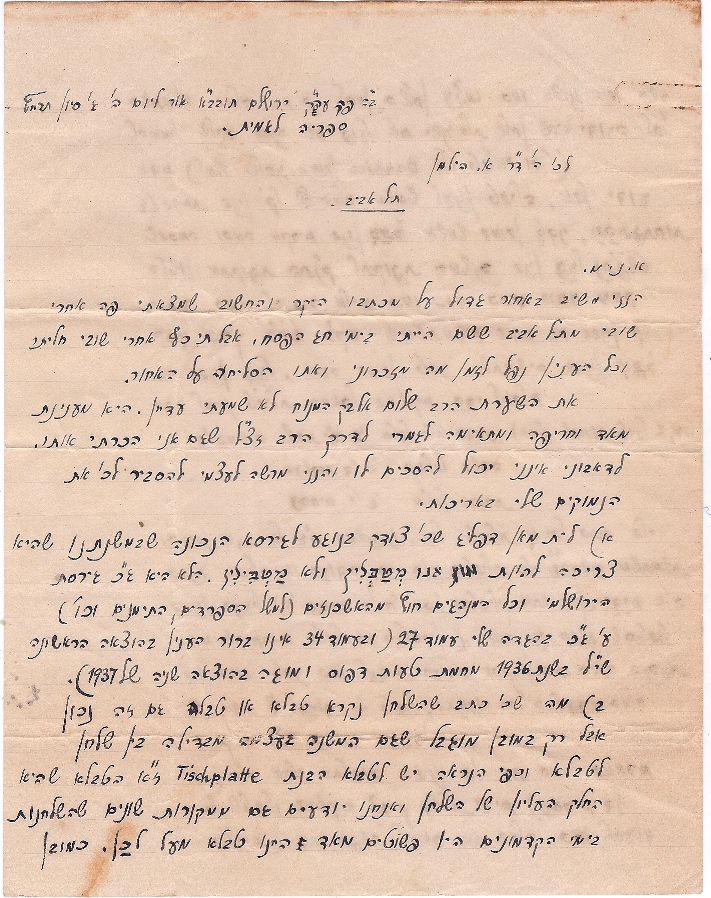 ב"ה פה עה"ק ירושלם תובב"א אור ליום ה' ג' סיון
ספריה לאמית.
לכ' ה' ד"ר א. הילמן
תל אביב.
א.נ.מ.
הנני משיב באחור גדול על מכתבו היקר והחשוב שמצאתי פה אחרי
שובי מתל אביב ששם הייתי בימי חג הפסח, אבל תיכף אחרי שובי חליתי
וכל הענין נפל לזמן מה מזכרוני ואתו הסליחה על האחור.
את השערת הרב שלום אלבק המנוח לא שמעתי עדין. היא מענינת
מאד וחריפה ומתאימה לגמרי לדרך הרב זצ"ל שגם אני הכרתי אותו.
לדאבוני אינני יכול להסכים לו והנני מרשה לעצמי להסביר לכ' את
הנמוקים שלי באריכות.
א) לית מאן דפליג שכ' צודק בנוגע לגירסא הנכונה שבמשנתנו שהיא
צריכה להיות אנו מְטַבְּלִין ולא מַטְבִּילִין. הלא היא ג"כ גירסת
הירושלמי וכל המנהגים חוץ מהאשכנזים (למשל הספרדים, התימנים וכו')
ע' ג"כ בהגדה שלי עמוד 27 (ובעמוד 34 אינו ברור הענין בהוצאה הראשונה
שי"ל בשנת 1936 מחמת טעות דפוס ומוגה בהוצאה שניה של 1937).
ב) מה שכ' כתב שהשלחן נקרא טבלא או טבלה גם זה נכון
אבל רק במובן מוגבל שגם המשנה בעצמה מבדילה בין שלחן
לטבלא וכפי הנראה יש לטבלא הבנת Tischplatte ז"א הטבלא שהיא
החלק העליון של השלחן ואנחנו יודעים גם ממקורות שונים שהשלחנות
בימי הקדמונים היו פשוטים מאד והינו טבלא מעל לכן. כמובן